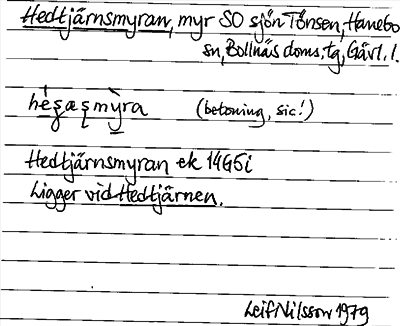 Hedtjärnsmyran, myr SO sjön Tönsen, Hanebo
sn, Bollnäs doms.tg, Gävl. l.
(betoning, sic!)
Hedtjärnsmyran ek 14G5i
Ligger vid Hedtjärnen.
Leif Nilsson 1979